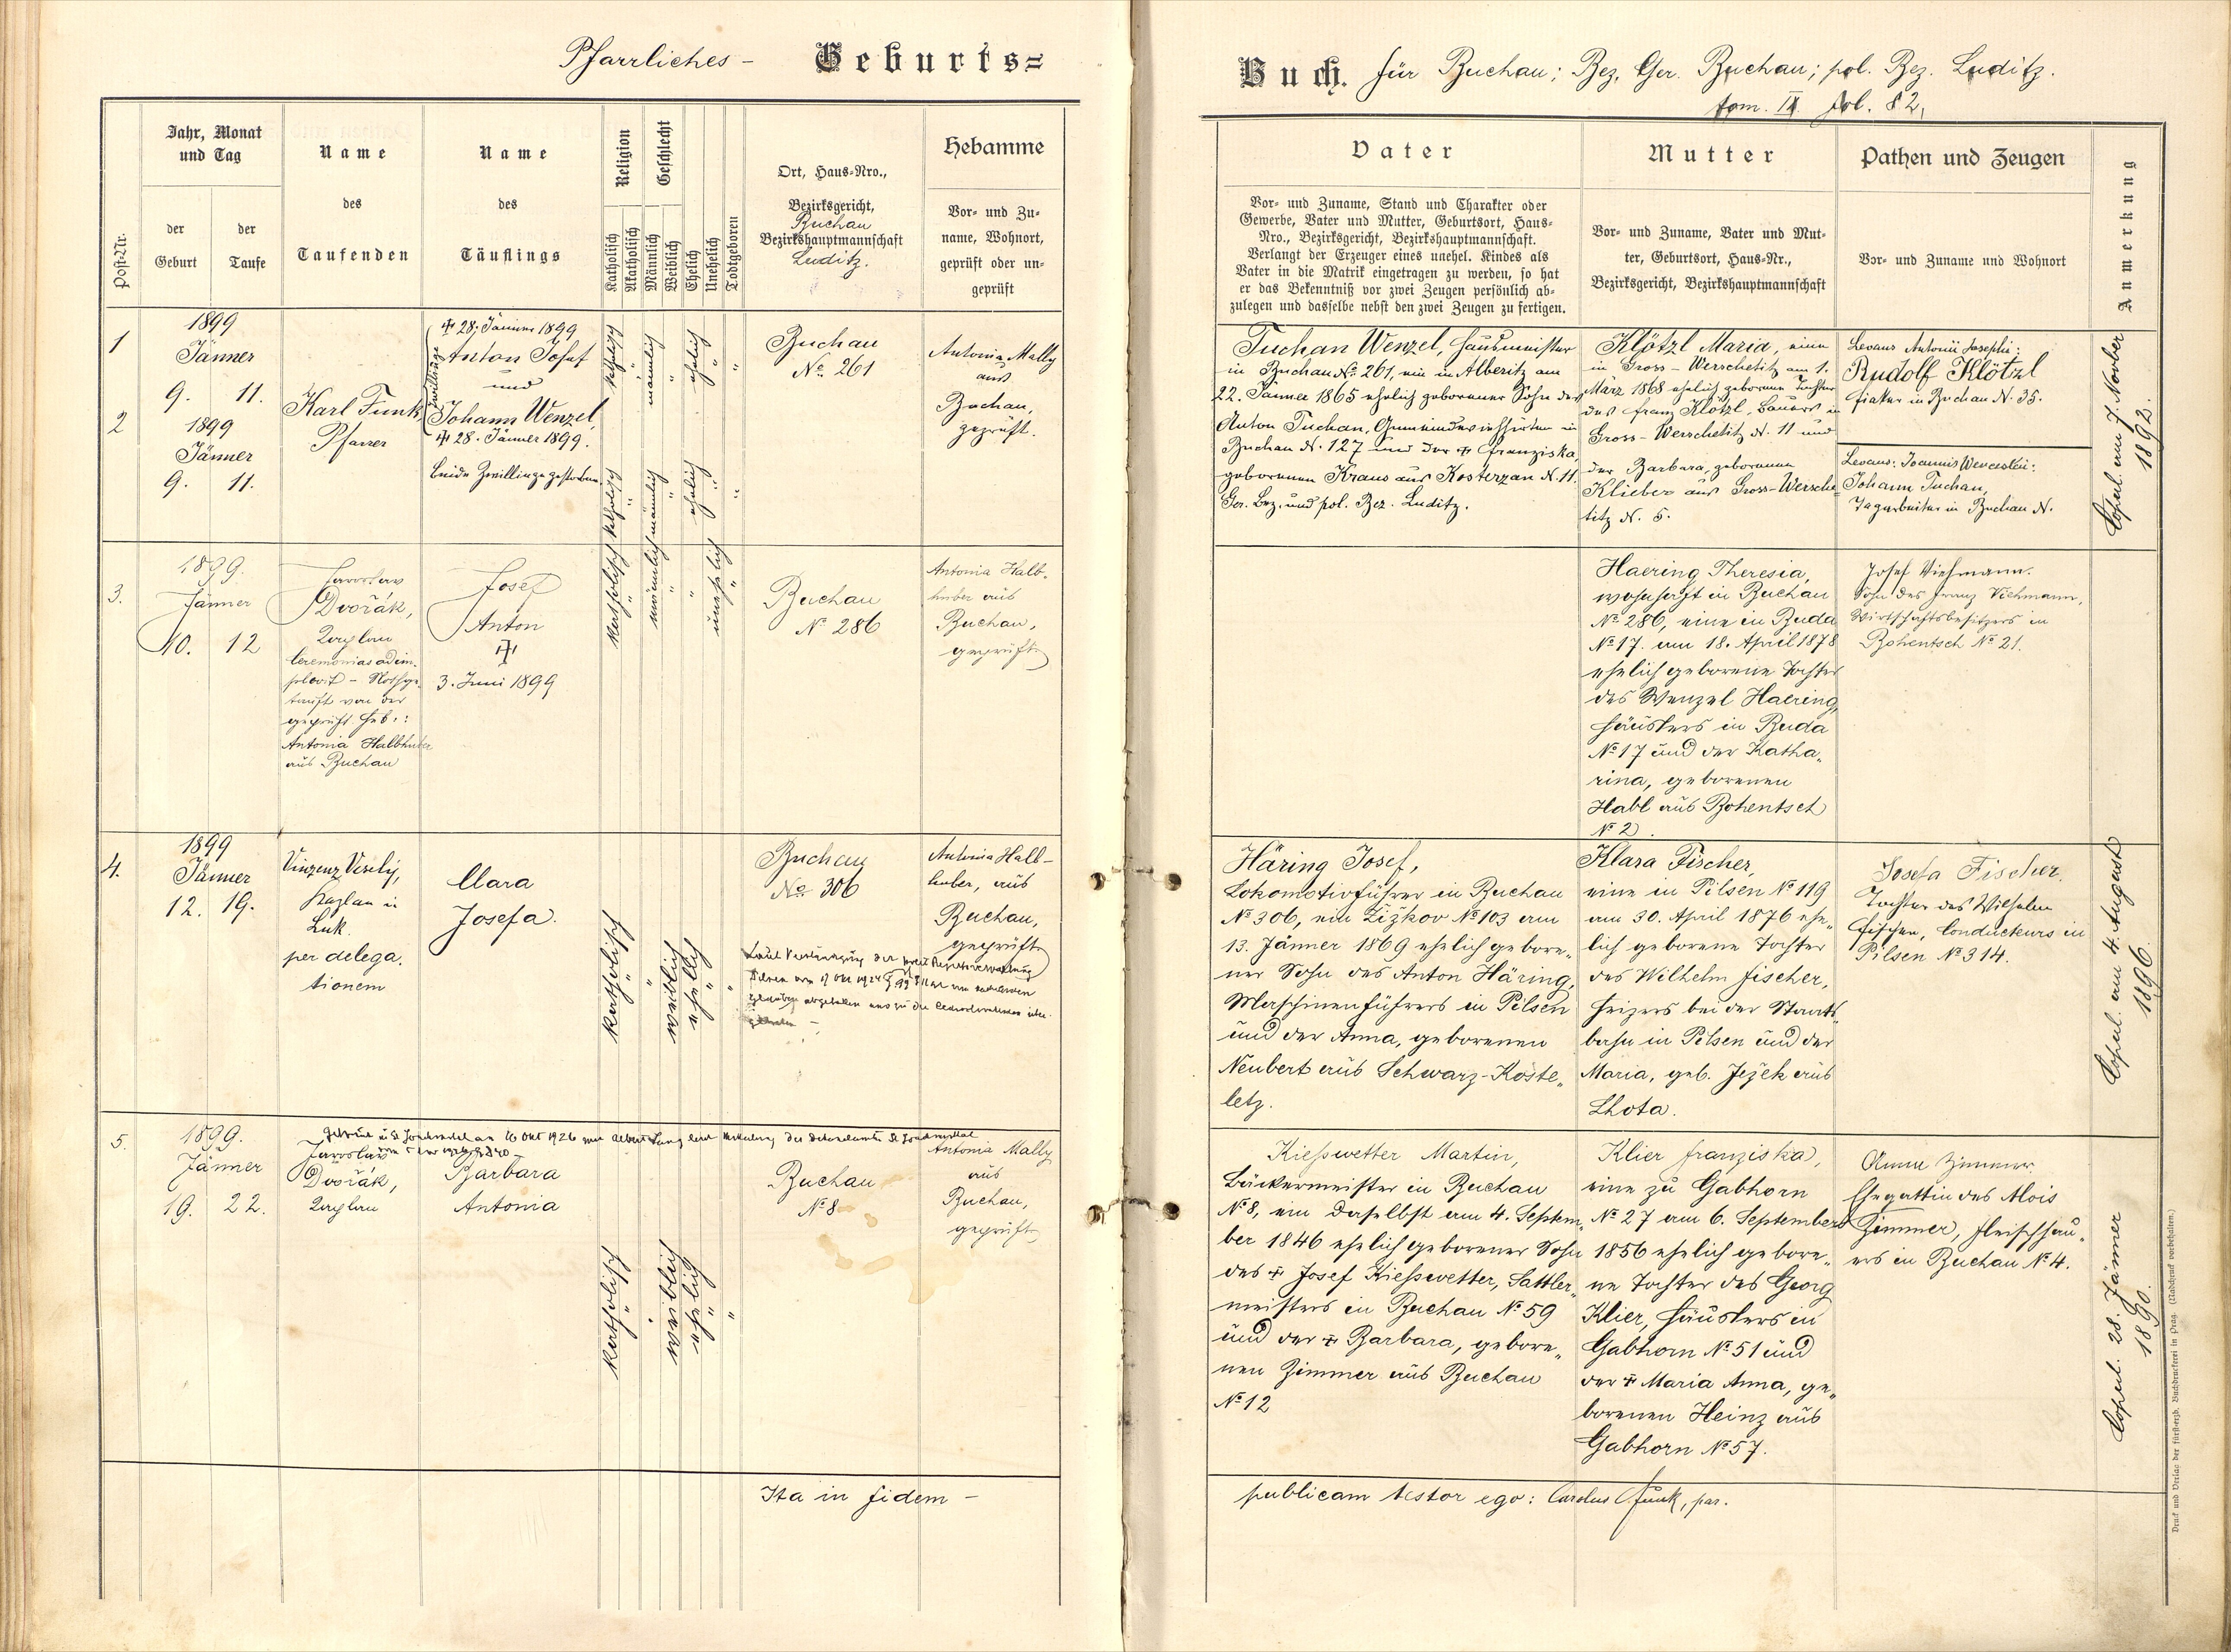 Pfarrliches - Geburts=
Jahr, Monat
und Tag
der
Geburt
der
Taufe
Post-Nr.
Name
des
Taufenden
Name
des
Täuflings
Religion
Geschlecht
Katholisch
Akatholisch
Männlich
Weiblich
Ehelich
Unehelich
Todtgeboren
Ort, Haus-Nro.,
Bezirksgericht,
Buchau
Bezirkshauptmannschaft
Luditz.
Hebamme
Vor- und Zu-
name, Wohnort,
geprüft oder un-
geprüft
1
1899
Jänner
9. 11.
2
1899
Jänner
9. 11.
Karl Funk,
Pfarrer
Zwillinge
28. Jänner 1899
Anton Josef
und
Johann Wenzel,
28. Jänner 1899.
beide Zwillinge gestorben.
katholisch
männlich
ehelich
katholisch
männlich
ehelich
Buchau
No. 261
Antonia Mally
aus
Buchau,
geprüft.
3.
1899.
Jänner
10. 12
Jaroslav
Dvořák,
Kaplan
ceremonias adim-
plevit - Nothge-
tauft von der
geprüft. Heb.:
Antonia Halbhuber
aus Buchau
Josef
Anton
3. Juni 1899
katholisch
männlich
unehelich
Buchau
No 286
Antonia Halb-
huber aus
Buchau,
geprüft
4.
1899
Jänner
12. 19.
Vinzenz Veselý,
Kaplan in
Luk.
per delega.
tionem
Clara
Josefa.
katholisch
weiblich
ehelich
Buchau
No 306
Antonia Halb-
huber, aus
Buchau,
geprüft
Laut Verständigung der
Pilsen vom 17 Okt 1924
5.
1899.
Jänner
19. 22.
Getraut in St Joachimsthal am 16 Okt 1926 mit Albert Lang laut Mitteilung des Dekanalamtes St Joachimsthal
Jaroslav
Dvořák,
Kaplan
Barbara
Antonia
katholisch
weiblich
ehelich
Buchau
No 8
Antonia Mally
aus
Buchau,
geprüft
Ita in fidem -
Buch. für Buchau; Bez. Ger. Buchau; pol. Bez. Luditz.
tom. IX. fol. 82.
Vater
Vor- und Zuname, Stand und Charakter oder
Gewerbe, Vater und Mutter, Geburtsort, Haus-
Nro., Bezirksgericht, Bezirkshauptmannschaft.
Verlangt der Erzeuger eines unehel. Kindes als
Vater in die Matrik eingetragen zu werden, so hat
er das Bekenntniß vor zwei Zeugen persönlich ab-
zulegen und dasselbe nebst den zwei Zeugen zu fertigen.
Mutter
Vor- und Zuname, Vater und Mut-
ter, Geburtsort, Haus-Nr.,
Bezirksgericht, Bezirkshauptmannschaft
Pathen und Zeugen
Vor- und Zuname und Wohnort
Anmerkung
Tuchan Wenzel, Hausmeister
in Buchau No. 261, ein in Alberitz am
22. Jänner 1865 ehelich geborener Sohn des
Anton Tuchan, Gemeindeviehhirten in
Buchau N. 127 und der Franziska
geborenen Kraus aus Kosterzan N. 11.
Ger. Bez. und pol. Bez. Luditz.
Klötzl Maria, eine
in Gross-Werschetitz am 1.
März 1868 ehelich geborene Tochter
des Franz Klötzl, Bauers in
Gross-Werschetitz N. 11 und
der Barbara, geborenen
Klieber aus Gross-Wersche
titz N. 5.
Levans Antonii Josephi:
Rudolf Klötzl
Fiaker in Buchau N. 35.
Levans: Joannis Wenceslai:
Johann Tuchan,
Tagarbeiter in Buchau N.
Copul. am 7. November
1892.
Haering Theresia,
wohnhaft in Buchau
No 286, eine in Buda
No 17. am 18. April 1878
ehelich geborene Tochter
des Wenzel Haering,
Häuslers in Buda
No 17 und der Katha-
rina, geborenen
Habl aus Bohentsch
No 2.
Josef Viehmann.
Sohn des Franz Viehmann,
Wirtschaftsbesitzers in
Bohentsch No 21.
Häring Josef,
Lokomotivführer in Buchau
No 306, ein Žižkov No 103 am
13. Jänner 1869 ehelich gebore-
ner Sohn des Anton Häring,
Maschinenführers in Pilsen
und der Anna, geborenen
Neubert aus Schwarz-Koste-
letz.
Klara Fischer,
eine in Pilsen No 119
am 30. April 1876 ehe-
lich geborene Tochter
des Wilhelm Fischer,
Heizers bei der Staats-
bahn in Pilsen und der
Maria, geb. Ježek aus
Lhota.
Josefa Fischer.
Tochter des Wilhelm
Fischer, Conducteurs in
Pilsen No 314.
Copul. am 4. August
1896.
Kießwetter Martin,
Bäckermeister in Buchau
No 8, ein daselbst am 4. Septem-
ber 1846 ehelich geborener Sohn
des Josef Kießwetter, Sattler-
meisters in Buchau No 59
und der Barbara, gebore-
nen Zimmer aus Buchau
No 12
Klier Franziska,
eine zu Gabhorn
No 27 am 6. September
1856 ehelich gebore-
ne Tochter des Georg
Klier, Häuslers in
Gabhorn No 51 und
der Maria Anna, ge-
borenen Heinz aus
Gabhorn No 57.
Anna Zimmer
Ehegattin des Alois
Zimmer, Fleischhau-
ers in Buchau No 4.
Copul. 28. Jänner
1890.
publicam testor ego: Carolus Funk, par.
Druck und Verlag der fürsterzb. Buchdruckerei in Prag. (Nachdruck vorbehalten.)